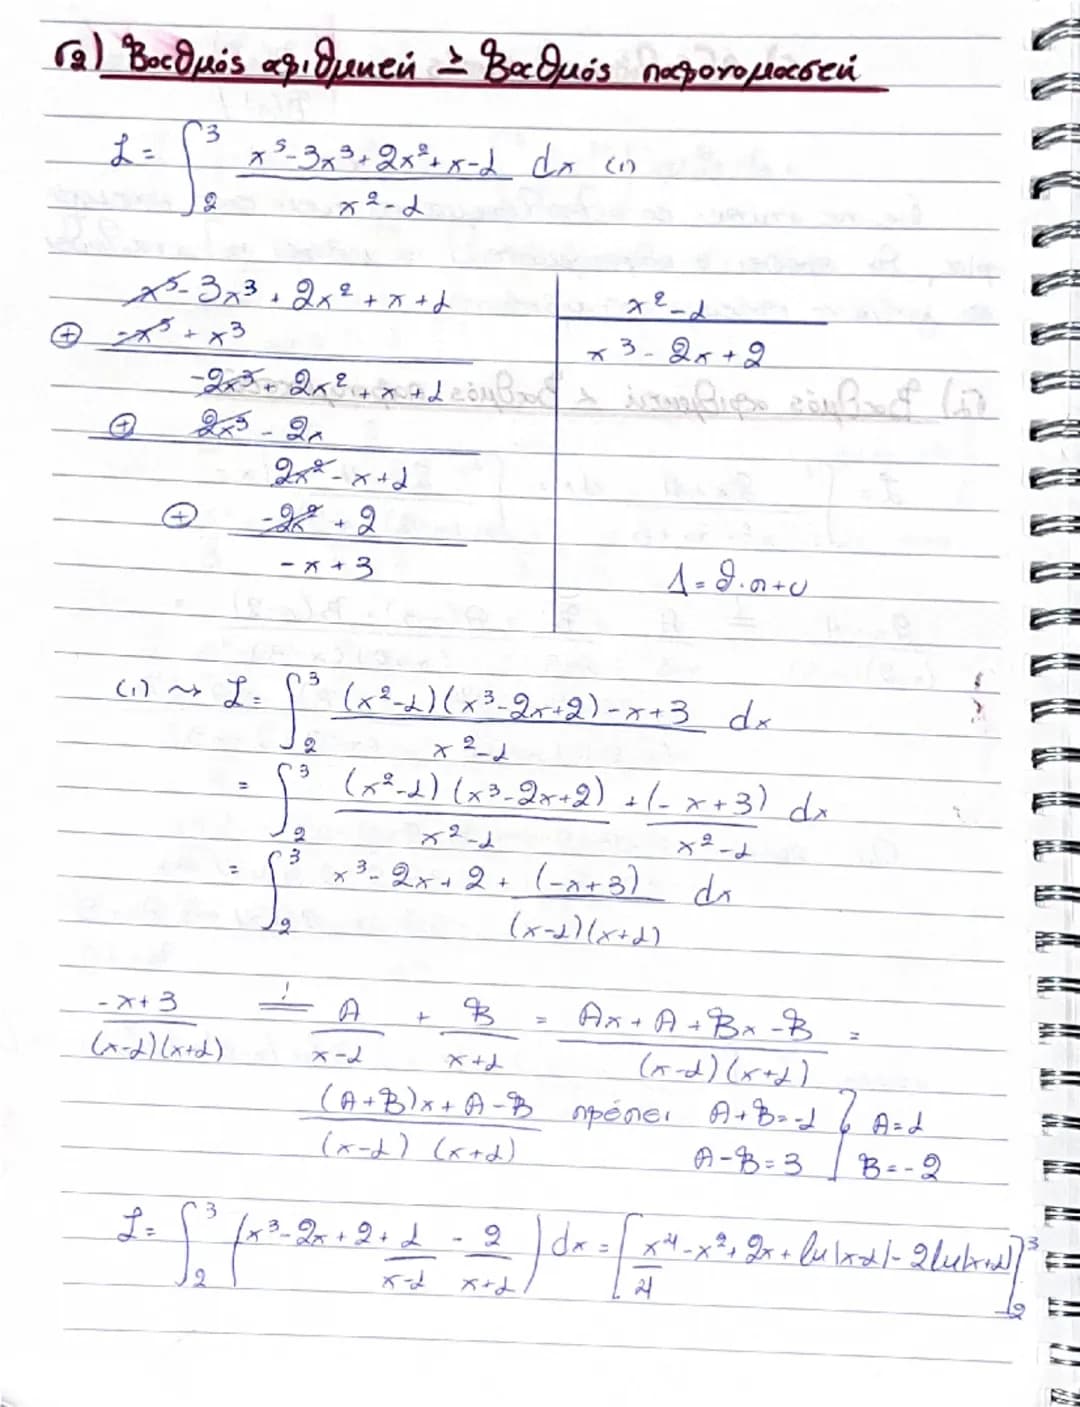 Γ2) Βαθμός αριθμητή ≥ Βαθμός παρονομαστή
I = ∫₂³ (x⁵-3x³+2x²+x-1)/(x²-1) dx (1)
x⁵-3x³+2x²+x+1 | x²-1
⊕ -x⁵+x³ | x³-2x+2
-2x³+2x²+x+1
⊕ 2x³-2x
2x²-x+1
⊕ -2x²+2
-x+3
Δ=δ·π+υ
(1) ⇝ I= ∫₂³ ((x²-1)(x³-2x+2)-x+3)/(x²-1) dx
= ∫₂³ ((x²-1)(x³-2x+2))/(x²-1) + (-x+3)/(x²-1) dx
= ∫₂³ x³-2x+2+ (-x+3)/((x-1)(x+1)) dx
(-x+3)/((x-1)(x+1)) =! A/(x-1) + B/(x+1) = (Ax+A+Bx-B)/((x-1)(x+1)) =
((A+B)x+A-B)/((x-1)(x+1)) πρέπει A+B=-1 } A=1
A-B=3 } B=-2
I= ∫₂³ (x³-2x+2+1/(x-1) - 2/(x+1)) dx = [x⁴/4 -x²+2x+ln|x-1|-2ln|x+1|]₂³